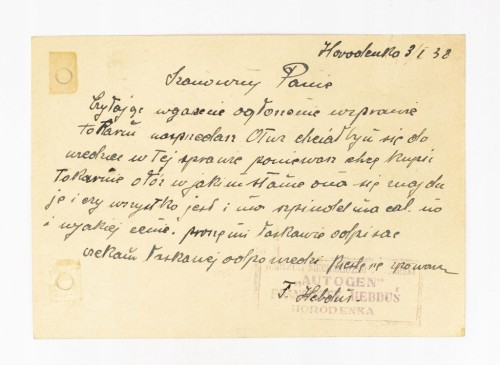 Horodenka 3/I 38
Szanowny Panie
Czytając w gazecie ogłoszenie w sprawie
tokarni na sprzedarz Otuz chciałbym się do
wiedzieć w tej sprawie poniewarz chcę kupić
tokarnie otóż w jakim stanie ona się znajdu
je i czy wszystko jest i na cal.
i w jakiej cenie. proszę mi łaskawie odpisać
czekam łaskawej odpowiedzi
F. Hebduś.
"AUTOGEN"
HEBDUŚ
HORODENKA